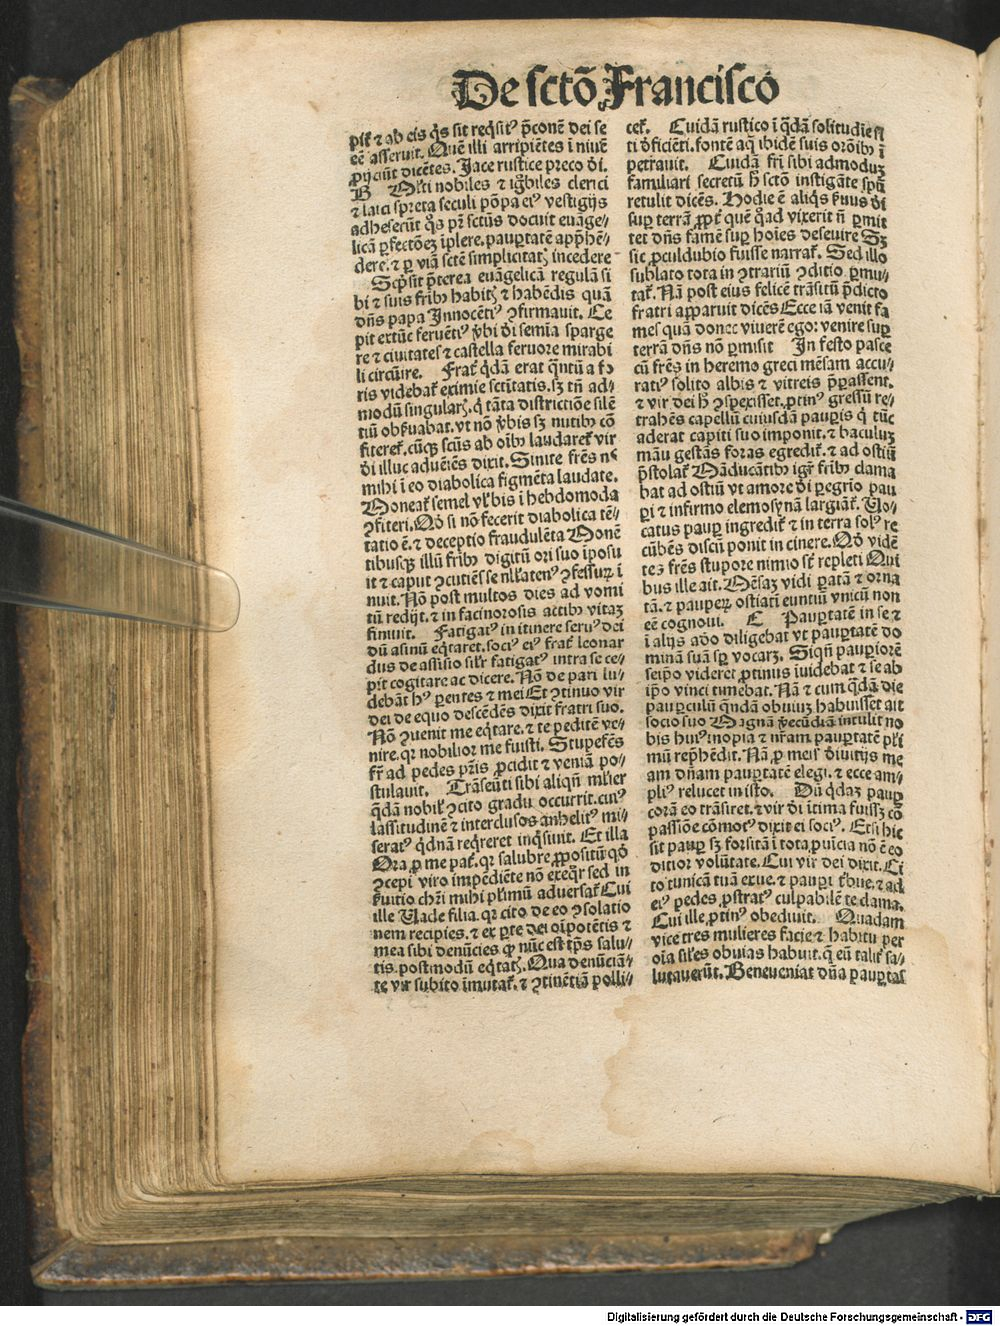 De sctō Francisco
pit̄ ⁊ ab eis q̄s sit reqͥsitꝰ p̄conē dei se
eē asseruit. Quē illi arripiētes ī niuē
ꝓijciūt dicētes. Jace rustice preco dī.
B Mlti nobiles ⁊ ig̈biles clerici
⁊ laici spreta seculi pōpa eiꝰ vestigijs
adheserūt qͦs pr̄ sctūs docuit euāge-
licā ꝑfectōeꝫ īplere. pauꝑtatē apphē-
dere. ⁊ ꝑ viā sctē simplicitatꝭ incedere
Scͥpsit p̄terea euāgelicā regulā si
bi ⁊ suis frīb⁹ habitꝭ ⁊ habēdis quā
dn̄s papa Innocētiꝰ ꝯfirmauit. Ce
pit extūc feruētiꝰ ṽbi dī semīa sparge
re ⁊ ciuitates ⁊ castella feruore mirabi
li circūire. Frat̄ qͥdā erat qͣntū a fo
ris videbat̄ eximie sctītatis. sꝫ tn̄ ad-
modū singularꝭ. qͥ tāta districtiōe silē
tiū obẜuabat. vt nō ṽbis sꝫ nutib⁹ cō
fiteret̄. cūqꝫ scūs ab oīb⁹ laudaret̄ vir
dī illuc aduēiēs dixit. Sinite frēs ne
mihi ī eo diabolica figmēta laudate.
Moneat̄ semel vl̓ bis ī hebdomoda
ꝯfiteri. Qͦ si nō fecerit diabolica tē-
tatio ē. ⁊ deceptio fraudulēta Monē
tibusqꝫ illū frīb⁹ digitū ori suo īposu
it ⁊ caput ꝯcutiēs se nl̓latenꝰ ꝯfessuꝝ ī
nuit. Nō post multos dies ad vomi
tū redijt. ⁊ in facinorosis actib⁹ vitaꝫ
finiuit. Fatigatꝰ in itinere seruꝰ dei
dū asinū eqͥtaret. sociꝰ eiꝰ frat̄ leonar
dus de assisio sil̓r fatigatꝰ intra se ce-
pit cogitare ac dicere. Nō de pari lu-
debāt hꝰ ꝑentes ⁊ mei Et ꝯtinuo vir
dei de equo descēdēs dixit fratri suo.
Nō ꝯuenit me eqͥtare. ⁊ te peditē ve-
nire. qr nobilior me fuisti. Stupefēs
fr̄ ad pedes pr̄is ꝓcidit ⁊ veniā po-
stulauit. Trāseūti sibi aliqn̄ ml̓ier
q̄dā nobil̓ ꝯcito gradu occurrit. cuiꝰ
lassitudinē ⁊ interclusos anhelitꝰ mi-
seratꝰ qͥdnā reqͥreret inqͥsiuit. Et illa
Ora ꝓ me pat̄. qr salubre ꝓpositū qͦ
ꝯcepi viro impēdiēte nō exeqͦr sed in
ẜuitio chr̄i mihi pl̓imū aduersat̄ Cui
ille Vade filia. qr cito de eo ꝯsolatio
nem recipies. ⁊ ex ꝑte dei oīpotētis ⁊
mea sibi denūcies ꝙ nūc est tp̄s salu-
tis. postmodū eqͥtatꝭ. Qua denūciā-
te vir subito īmutat̄. ⁊ ꝯtinētiā polli-
cet̄. Cuidā rustico ī qͣdā solitudīe si
ti dͤficiēti. fontē aq̄ ibidē suis orōib⁹ ī
petrauit. Cuidā frī sibi admoduꝫ
familiari secretū h̄ sctō instigāte spū
retulit dicēs. Hodie ē aliqͥs ẜuus dī
suꝑ terrā ꝓpt̄ quē qͣdiu vixerit n̄ ꝑmit
tet dn̄s famē suꝑ hoīes deseuire Sꝫ
sic ꝓculdubio fuisse narrat̄. Sed illo
sublato tota in ꝯtrariū ꝯditio ꝑmu-
tat̄. Nā post eius felicē trāsitū p̄dicto
fratri apparuit dicēs Ecce iā venit fa
mes quā donec viuerē ego: venire suꝑ
terrā dn̄s nō ꝑmisit In festo pasce
cū frēs in heremo greci mēsam accu-
ratiꝰ solito albis ⁊ vitreis p̄ꝑassent.
⁊ vir dei h̄ ꝯspexisset. ꝓtinꝰ gressū re-
trahēs capellū cuiusdā pauꝑis qͥ tūc
aderat capiti suo imponit. ⁊ baculuꝫ
māu gestās foras egredit̄. ⁊ ad ostiū
p̄stolat̄ Māducātib⁹ igr̄ frīb⁹ clama
bat ad ostiū vt amore dī ꝑegrīo pau
ꝑi ⁊ infirmo elemosynā largiāt̄. Vo-
catus pauꝑ ingredit̄ ⁊ in terra solꝰ re
cūbēs discū ponit in cinere. Qͦ vidē
tes frēs stupore nimio st̄ repleti Qui
bus ille ait. Mēsaꝫ vidi ꝑatā ⁊ orna
tā. ⁊ pauperꝫ ostiatī euntiū vnicū non
eē cognoui. C Pauꝑtatē in se ⁊
ī alijs adeo diligebat vt pauꝑtatē do
minā suā sꝑ vocarꝫ. Siqͣn̄ pauꝑiorē
seip̄o videret ꝓtinus īuidebat ⁊ se ab
ip̄o vinci timebat. Nā ⁊ cum qͣdam die
pauꝑculū quēdā obuiuꝫ habuisset ait
socio suo Magnā ṽecūdiā intulit no
bis huiꝰ inopia ⁊ nr̄am pauꝑtatē pl̓i
mū rep̄hēdit. Nā ꝓ meis dīuitijs me
am dn̄am pauꝑtatē elegi. ⁊ ecce am-
pliꝰ relucet in isto. Dū qͥdaꝫ pauꝑ
corā eo trāsiret. ⁊ vir dī ītima fuissꝫ cō
passiōe cōmotꝰ dixit ei sociꝰ. Etsi hic
sit pauꝑ sꝫ forsitā ī tota ꝓuīcia nō ē eo
ditior volūtate. Cui vir dei dixit. Ci
to tunicā tuā exue. ⁊ pauꝑi tͥbue. ⁊ ad
eiꝰ pedes ꝓstratꝰ culpabilē te clama.
Cui ille ꝓtinꝰ obediuit. Quadam
vice tres mulieres facie ⁊ habitu per
oīa sil̓es obuias habuit. q̄ eū talit̄ sa-
lutauerūt. Beneueniat dn̄a pauꝑtas
Digitalisierung gefördert durch die Deutsche Forschungsgemeinschaft - DFG